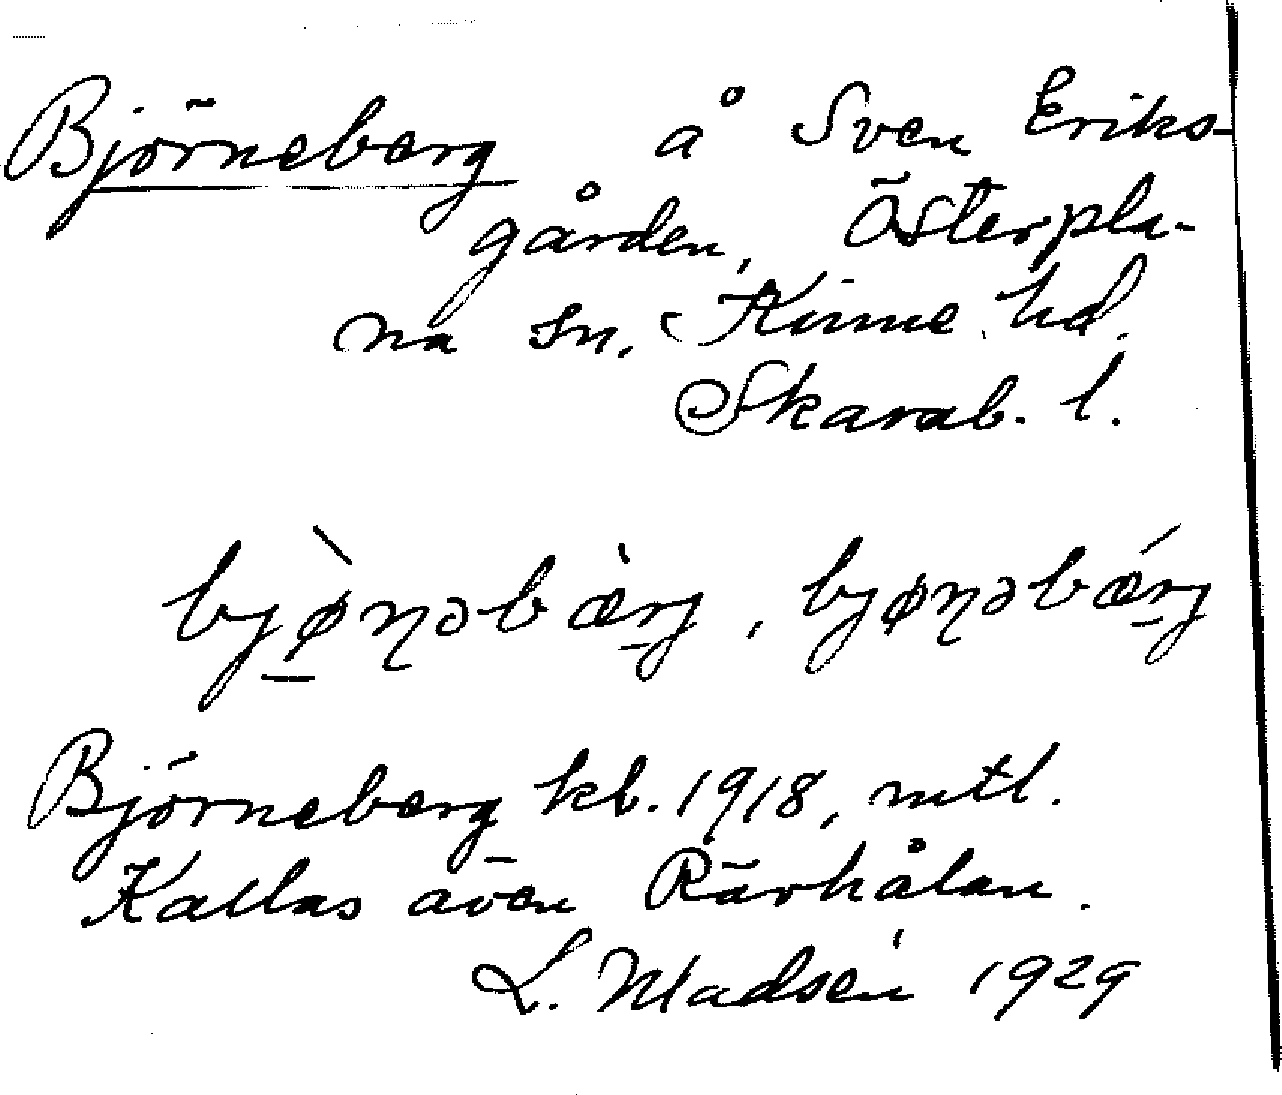 Björneberg å Sven Eriks-
gården, Österpla-
na sn. Kinne hd.
Skarab. l.
bjø̀n̡əbæ̀rj, bjøn̡əbǽrj
Björneberg kb. 1918, mtl.
Kallas även Rävhålan.
L. Madsén 1929